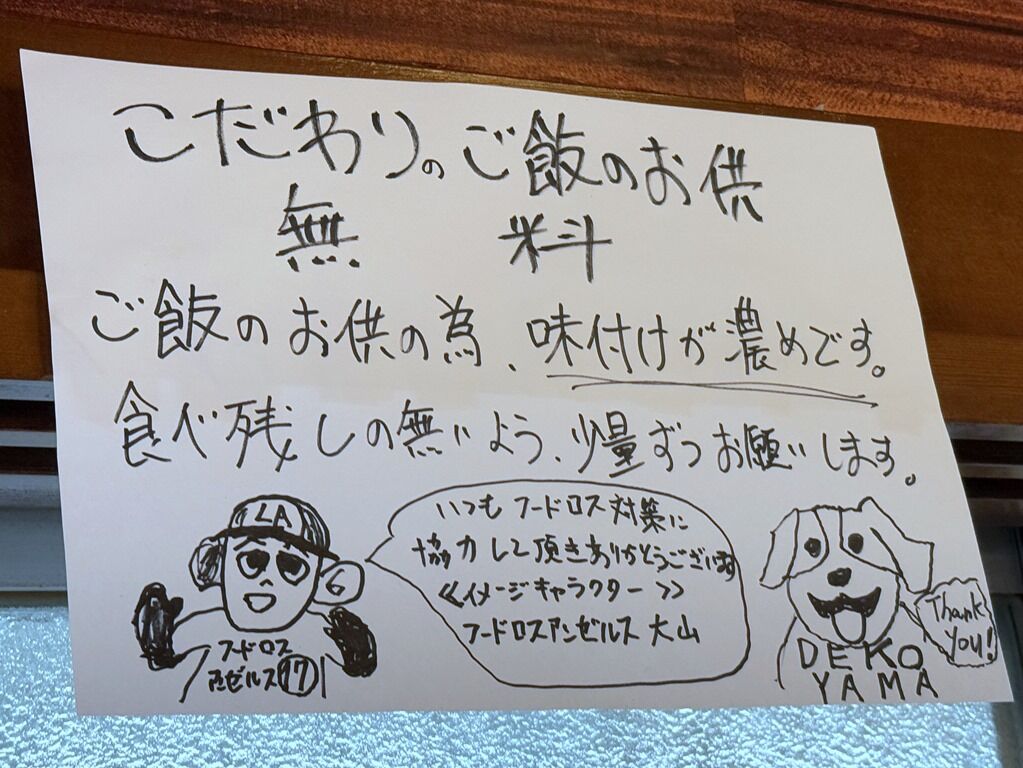 こだわりのご飯のお供
無料
ご飯のお供の為、味付けが濃めです。
食べ残しの無いよう、少量ずつお願いします。
LA
フードロス
アンゼルス 17
いつもフードロス対策に
協力して頂きありがとうございます
≪イメージキャラクター≫
フードロスアンゼルス 大山
Thank
you!
DEKO
YAMA